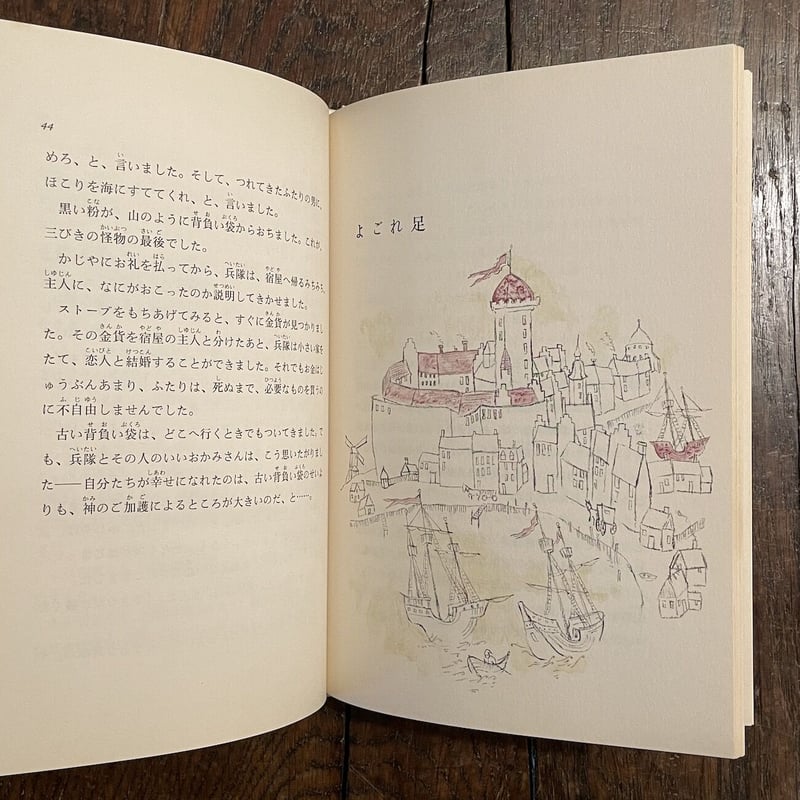 44
めろ、と、言いました。そして、つれてきたふたりの男に、
ほこりを海にすててくれ、と、言いました。
黒い粉が、山のように背負い袋からおちました。これが、
三びきの怪物の最後でした。
かじやにお礼を払ってから、兵隊は、宿屋へ帰るみちみち、
主人に、なにがおこったのか説明してきかせました。
ストーブをもちあげてみると、すぐに金貨が見つかりまし
た。その金貨を宿屋の主人と分けたあと、兵隊は小さい家を
たて、恋人と結婚することができました。それでもお金はじ
ゅうぶんあまり、ふたりは、死ぬまで、必要なものを買うの
に不自由しませんでした。
古い背負い袋は、どこへ行くときでもついてきました。で
も、兵隊とその人のいいおかみさんは、こう思いがたりまし
た──自分たちが幸せになれたのは、古い背負い袋のせいよ
りも、神のご加護によるところが大きいのだ、と……。
よごれ足